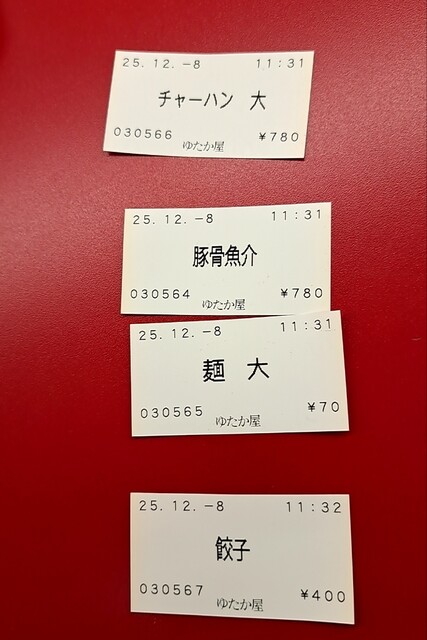 25.12.-8 11:31
チャーハン 大
030566 ¥780
ゆたか屋
25.12.-8 11:31
豚骨魚介
030564 ¥780
ゆたか屋
25.12.-8 11:31
麺 大
030565 ¥70
ゆたか屋
25.12.-8 11:32
餃子
030567 ¥400
ゆたか屋